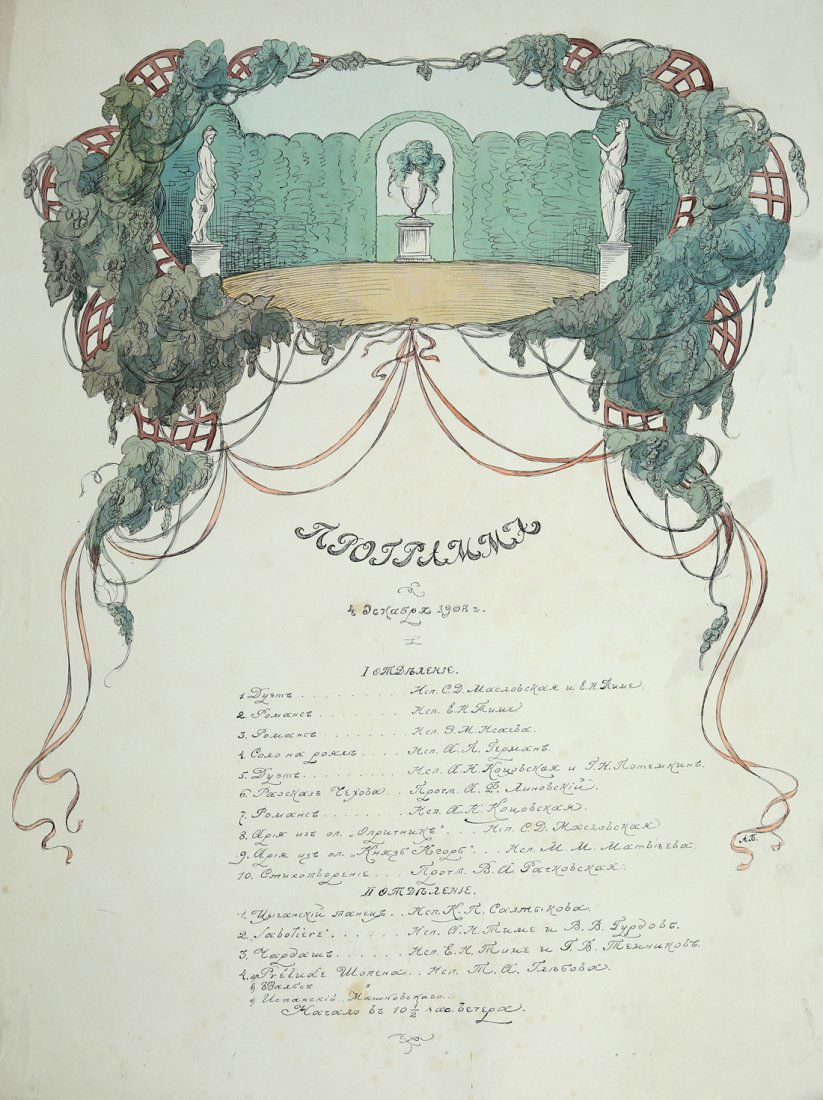 ПРОГРАММА
4 Декабря 1908 г.
I ОТДѢЛЕНІЕ.
1. Дуэтъ . . . . . . . . . . Исп. С. Д. Масловская и Е. Н. Тиме.
2. Романсъ . . . . . . . . Исп. Е. Н. Тиме
3. Романсъ . . . . . . . . Исп. Э. М. Исаева.
4. Соло на роялѣ . . . . Исп. А. П. Германъ.
5. Дуэтъ . . . . . . . . . . Исп. А. Н. Коцовская и Г. Н. Потемкинъ.
6. Разсказъ Чехова . . Прочт. А. Ф. Линовскій.
7. Романсъ . . . . . . . . Исп. А. Н. Коцовская.
8. Арія изъ оп. „Опричникъ“ . . . Исп. С. Д. Масловская
9. Арія изъ оп. „Князь Игорь“ . . . Исп. М. М. Матвѣева.
10. Стихотвореніе . . . . Прочт. В. А. Рачковская.
II ОТДѢЛЕНІЕ.
1. Цыганскій танецъ . . Исп. К. П. Салтыкова.
2. „Sabotière“ . . . . . . . Исп. А. Н. Тиме и В. В. Гурдовъ.
3. Чардашъ . . . . . . . . Исп. Е. Н. Тиме и Г. В. Темниковъ.
4. a) Prélude Шопена . . Исп. Т. А. Глѣбова.
b) Вальсъ "
c) Испанскій Машковскаго . .
Начало въ 10 1/2 час. вечера.
А.Б.